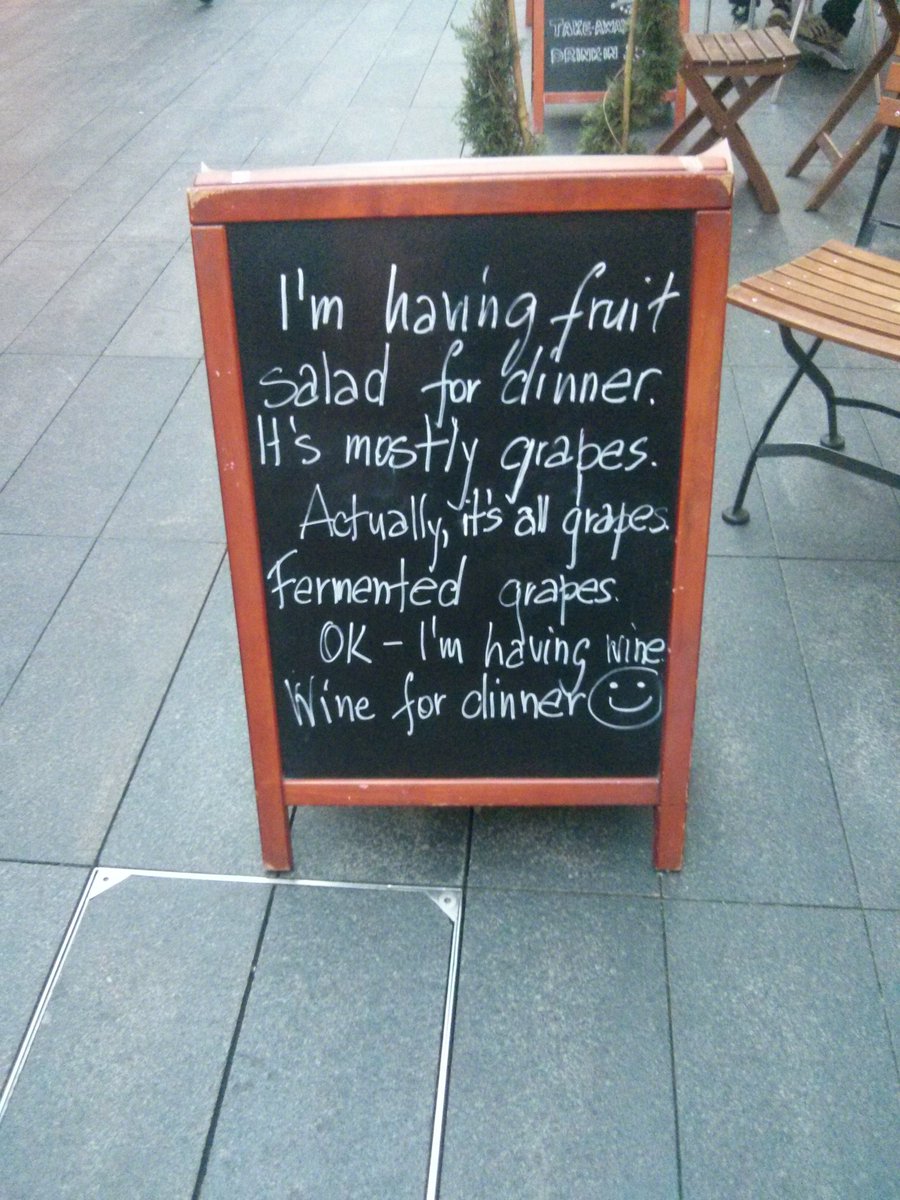 TAKE-AWAY
DRINK IN
I'm having fruit
salad for dinner.
It's mostly grapes.
Actually, it's all grapes.
Fermented grapes.
OK - I'm having wine.
Wine for dinner ☺